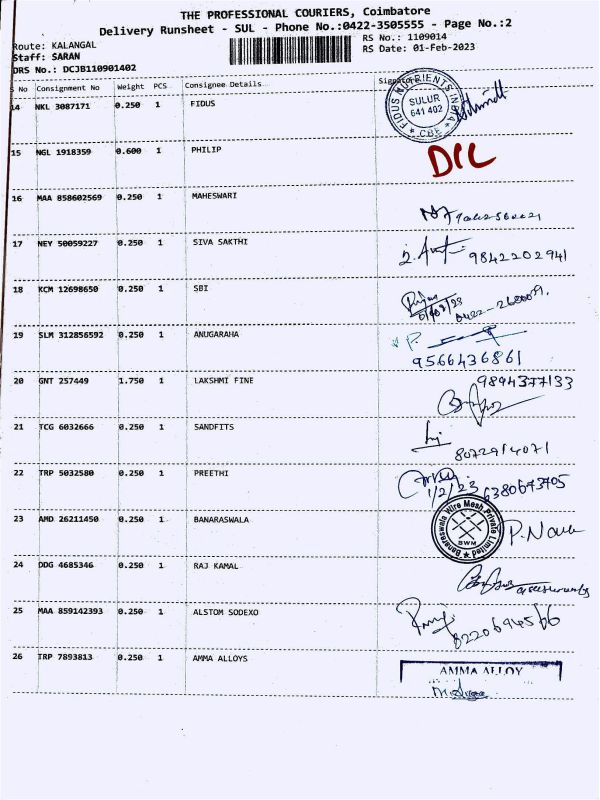 THE PROFESSIONAL COURIERS, Coimbatore
Delivery Runsheet - SUL - Phone No.:0422-3505555 - Page No.:2
Route: KALANGAL
RS No.: 1109014
Staff: SARAN
RS Date: 01-Feb-2023
DRS No.: DCJB110901402
S No Consignment No Weight PCS Consignee Details Signature
14 NKL 3087171 0.250 1 FIDUS
FIDUS NUTRIENTS INDIA
SULUR
641 402
CBE
15 NGL 1918359 0.600 1 PHILIP
16 MAA 858602569 0.250 1 MAHESWARI
17 NEY 50059227 0.250 1 SIVA SAKTHI
9842202941
18 KCM 12698650 0.250 1 SBI
19 SLM 312856592 0.250 1 ANUGARAHA
9566436861
20 GNT 257449 1.750 1 LAKSHMI FINE
9894377133
21 TCG 6032666 0.250 1 SANDFITS
8072914071
22 TRP 5032580 0.250 1 PREETHI
1/2/23 6380673705
23 AMD 26211450 0.250 1 BANARASWALA
Banaraswala Wire Mesh Private Limited
BWM
24 DDG 4685346 0.250 1 RAJ KAMAL
25 MAA 859142393 0.250 1 ALSTOM SODEXO
8220694566
26 TRP 7893813 0.250 1 AMMA ALLOYS
AMMA ALLOY